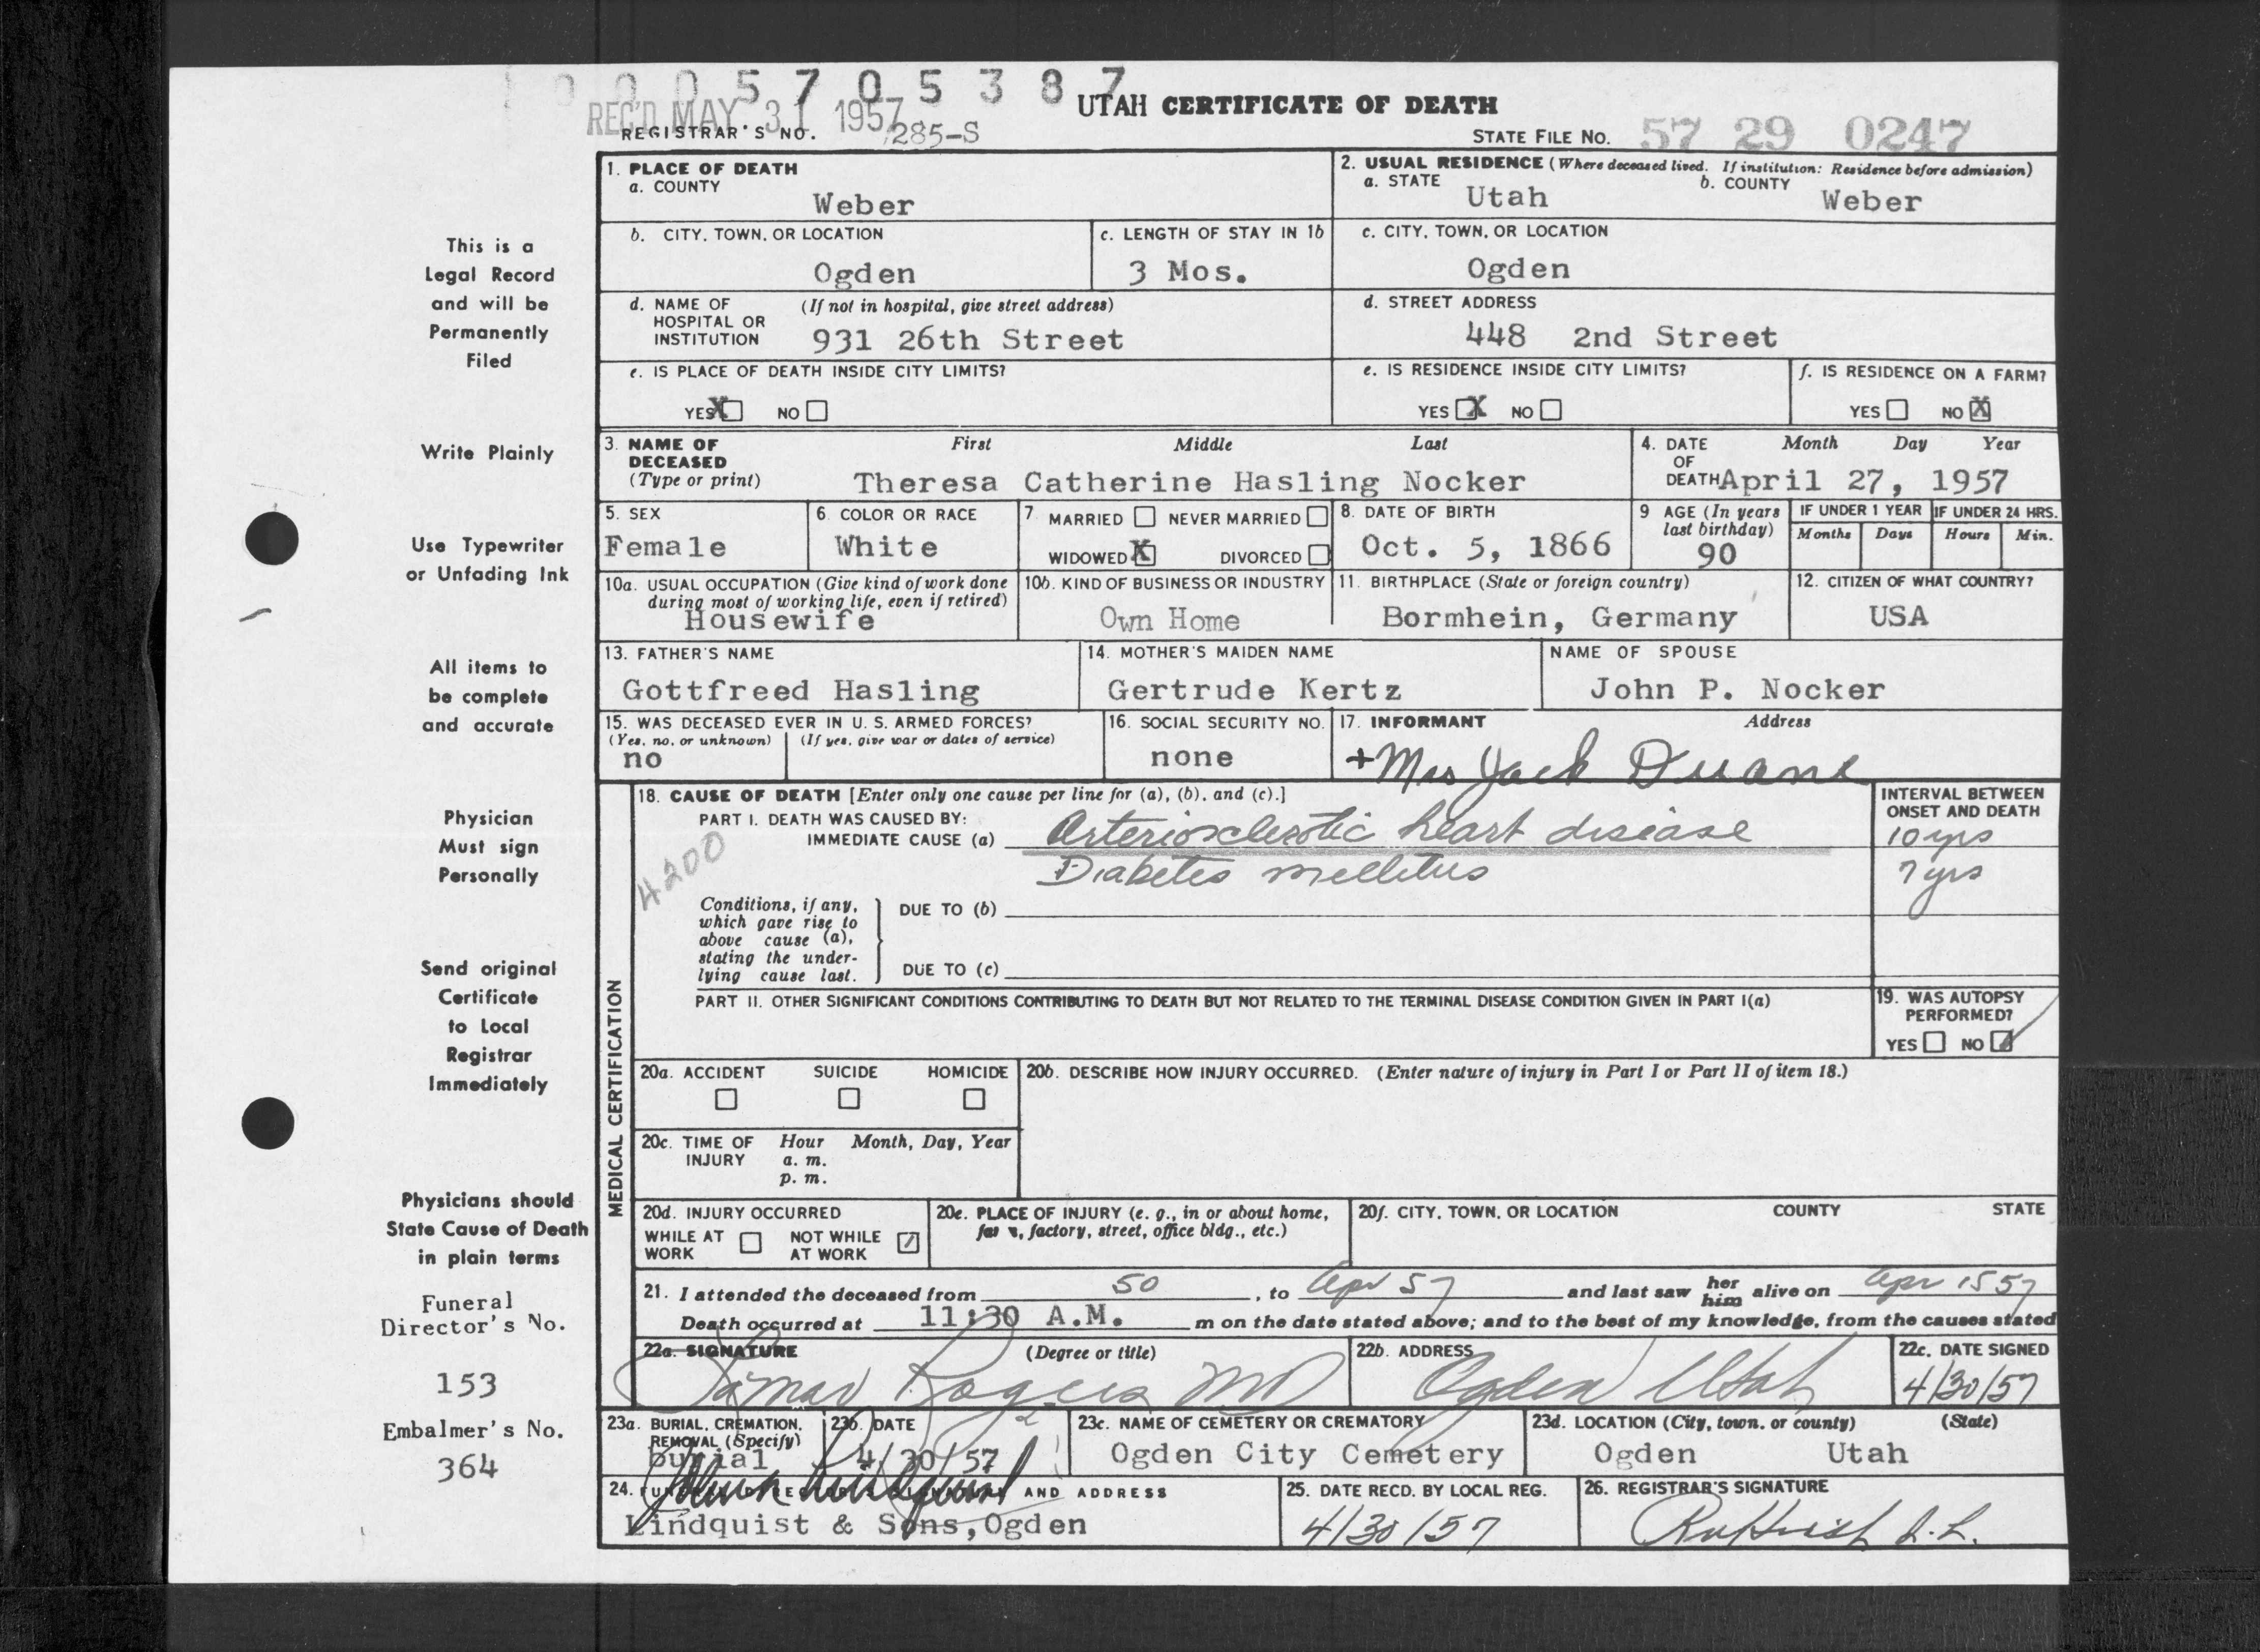 0 0 0 5 7 0 5 3 8 7
REC'D MAY 31 1957
UTAH CERTIFICATE OF DEATH
REGISTRAR'S NO. 285-S
STATE FILE NO. 57 29 0247
1. PLACE OF DEATH
a. COUNTY
Weber
2. USUAL RESIDENCE (Where deceased lived. If institution: Residence before admission)
a. STATE Utah
b. COUNTY Weber
b. CITY, TOWN, OR LOCATION
Ogden
c. LENGTH OF STAY IN 1b
3 Mos.
c. CITY, TOWN, OR LOCATION
Ogden
d. NAME OF HOSPITAL OR INSTITUTION
(If not in hospital, give street address)
931 26th Street
d. STREET ADDRESS
448 2nd Street
e. IS PLACE OF DEATH INSIDE CITY LIMITS?
YES X NO
e. IS RESIDENCE INSIDE CITY LIMITS?
YES X NO
f. IS RESIDENCE ON A FARM?
YES NO X
3. NAME OF DECEASED
(Type or print)
First Middle Last
Theresa Catherine Hasling Nocker
4. DATE OF DEATH
Month Day Year
April 27, 1957
5. SEX
Female
6. COLOR OR RACE
White
7 MARRIED NEVER MARRIED
WIDOWED X DIVORCED
8. DATE OF BIRTH
Oct. 5, 1866
9 AGE (In years last birthday)
90
IF UNDER 1 YEAR
Months Days
IF UNDER 24 HRS.
Hours Min.
10a. USUAL OCCUPATION (Give kind of work done
during most of working life, even if retired)
Housewife
10b. KIND OF BUSINESS OR INDUSTRY
Own Home
11. BIRTHPLACE (State or foreign country)
Bormhein, Germany
12. CITIZEN OF WHAT COUNTRY?
USA
13. FATHER'S NAME
Gottfreed Hasling
14. MOTHER'S MAIDEN NAME
Gertrude Kertz
NAME OF SPOUSE
John P. Nocker
15. WAS DECEASED EVER IN U. S. ARMED FORCES?
(Yes, no, or unknown) (If yes, give war or dates of service)
no
16. SOCIAL SECURITY NO.
none
17. INFORMANT Address
+Mrs Jack Duane
MEDICAL CERTIFICATION
18. CAUSE OF DEATH [Enter only one cause per line for (a), (b), and (c).]
PART I. DEATH WAS CAUSED BY:
IMMEDIATE CAUSE (a) Arteriosclerotic heart disease
Diabetes mellitus
4200
INTERVAL BETWEEN
ONSET AND DEATH
10 yrs
7 yrs
Conditions, if any,
which gave rise to
above cause (a),
stating the under-
lying cause last.
DUE TO (b)
DUE TO (c)
PART II. OTHER SIGNIFICANT CONDITIONS CONTRIBUTING TO DEATH BUT NOT RELATED TO THE TERMINAL DISEASE CONDITION GIVEN IN PART I(a)
19. WAS AUTOPSY
PERFORMED?
YES NO
20a. ACCIDENT SUICIDE HOMICIDE
20b. DESCRIBE HOW INJURY OCCURRED. (Enter nature of injury in Part I or Part II of item 18.)
20c. TIME OF INJURY
Hour Month, Day, Year
a. m.
p. m.
20d. INJURY OCCURRED
WHILE AT WORK
NOT WHILE AT WORK
20e. PLACE OF INJURY (e. g., in or about home,
factory, street, office bldg., etc.)
20f. CITY, TOWN, OR LOCATION COUNTY STATE
21. I attended the deceased from 50, to Apr 57 and last saw her him alive on Apr 15 57
Death occurred at 11:30 A.M. m on the date stated above; and to the best of my knowledge, from the causes stated
22a. SIGNATURE (Degree or title)
Rogers MD
22b. ADDRESS
Ogden Utah
22c. DATE SIGNED
4/30/57
23a. BURIAL, CREMATION,
REMOVAL (Specify)
burial
23b. DATE
4/30/57
23c. NAME OF CEMETERY OR CREMATORY
Ogden City Cemetery
23d. LOCATION (City, town, or county) (State)
Ogden Utah
24. AND ADDRESS
Lindquist & Sons, Ogden
25. DATE RECD. BY LOCAL REG.
4/30/57
26. REGISTRAR'S SIGNATURE
This is a
Legal Record
and will be
Permanently
Filed
Write Plainly
Use Typewriter
or Unfading Ink
All items to
be complete
and accurate
Physician
Must sign
Personally
Send original
Certificate
to Local
Registrar
Immediately
Physicians should
State Cause of Death
in plain terms
Funeral
Director's No.
153
Embalmer's No.
364